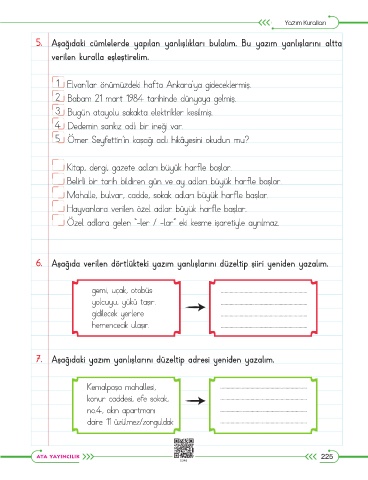 Yazım Kuralları
5. Aşağıdaki cümlelerde yapılan yanlışlıkları bulalım. Bu yazım yanlışlarını altta
verilen kuralla eşleştirelim.
1 Elvan'lar önümüzdeki hafta Ankara'ya gideceklermiş.
2 Babam 21 mart 1984 tarihinde dünyaya gelmiş.
3 Bugün atayolu sokakta elektrikler kesilmiş.
4 Dedemin sarıkız adlı bir ineği var.
5 Ömer Seyfettin'in kaşağı adlı hikâyesini okudun mu?
Kitap, dergi, gazete adları büyük harfle başlar.
Belirli bir tarih bildiren gün ve ay adları büyük harfle başlar.
Mahalle, bulvar, cadde, sokak adları büyük harfle başlar.
Hayvanlara verilen özel adlar büyük harfle başlar.
Özel adlara gelen "-ler / -lar" eki kesme işaretiyle ayrılmaz.
6. Aşağıda verilen dörtlükteki yazım yanlışlarını düzeltip şiiri yeniden yazalım.
gemi, ucak, otobüs
yolcuyu, yükü taşır.
gidilecek yerlere
hemencecik ulaşır.
7. Aşağıdaki yazım yanlışlarını düzeltip adresi yeniden yazalım.
Kemalpaşa mahallesi,
konur caddesi, efe sokak,
no:4, akın apartmanı
daire 11 üzülmez/zonguldak
ATA YAYINCILIK
225